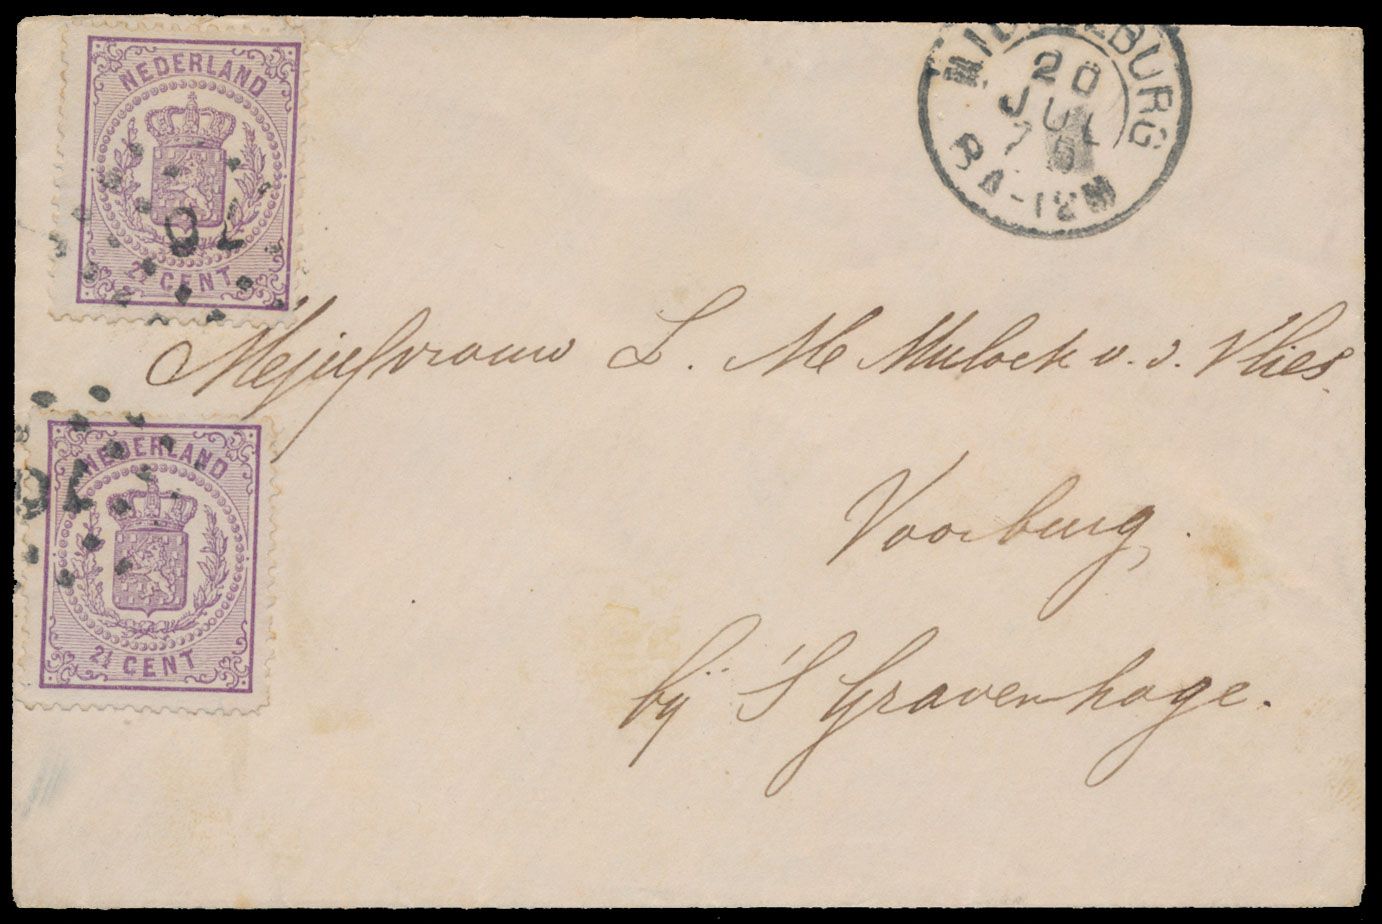 NEDERLAND
2½ CENT
70
MIDDELBURG
20
JUL
8A-12M
Mejufvrouw L. M Mulock v. d. Vlies.
NEDERLAND
2½ CENT
70
Voorburg.
bij 'S Gravenhage.